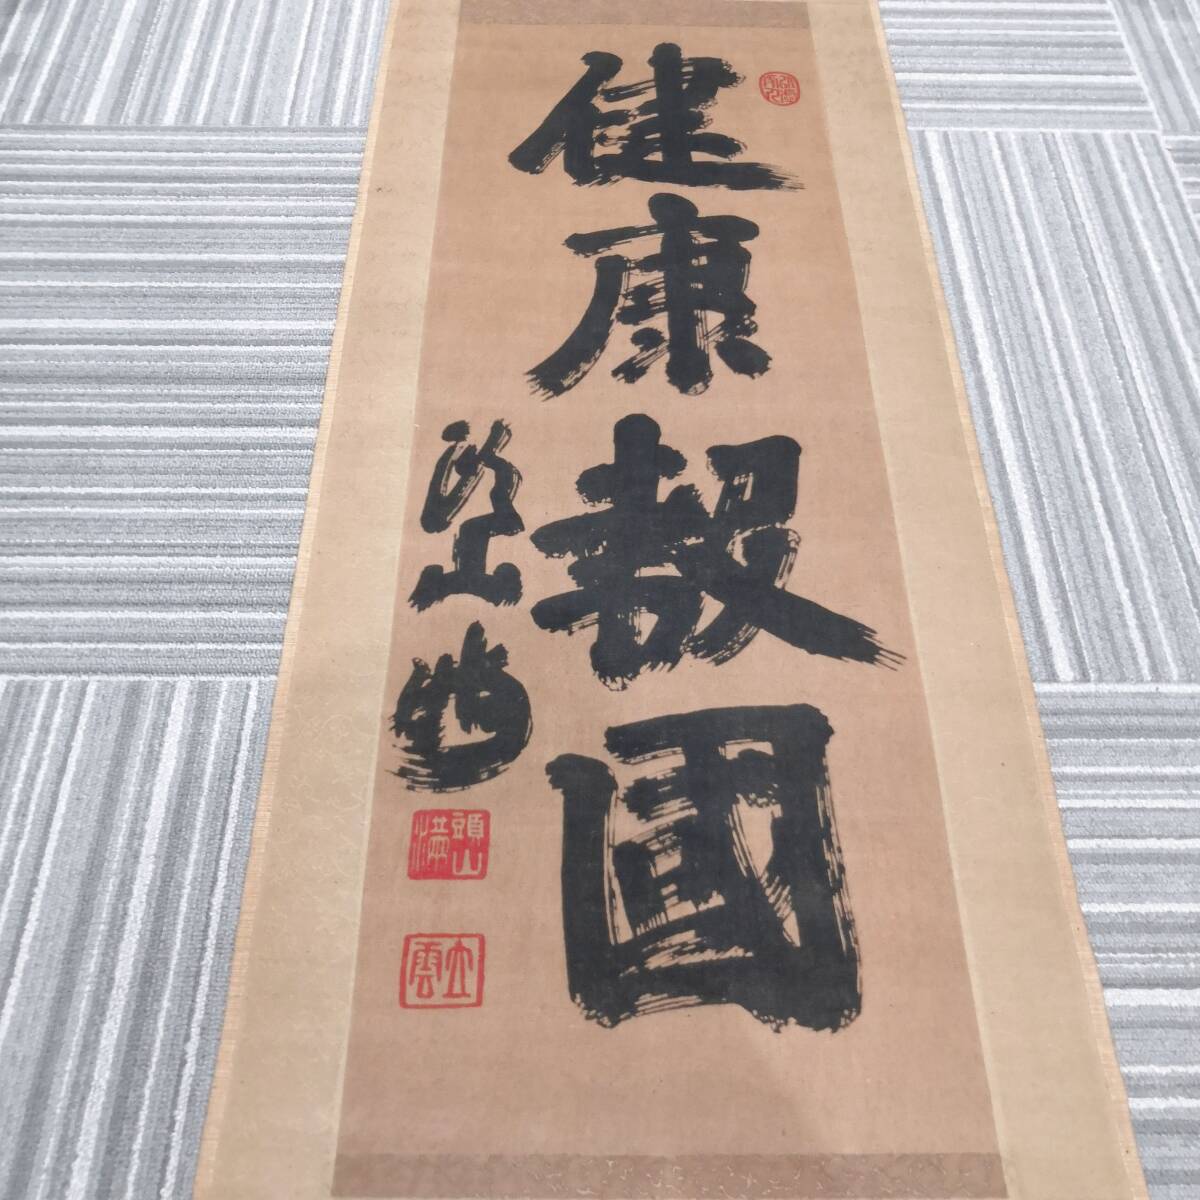 健康報國
頭山満
頭山満
立雲